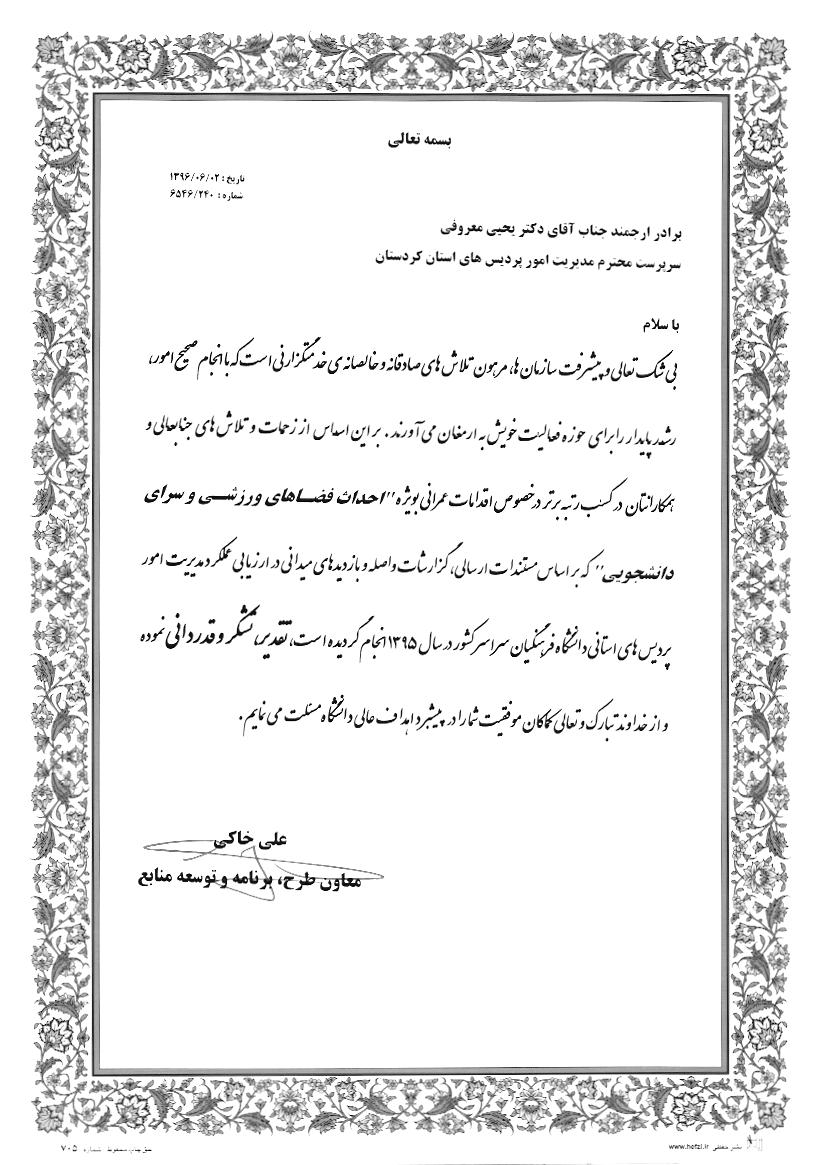 بسمه تعالی
تاریخ : ۱۳۹۶/۰۶/۰۲
شماره : ۶۵۴۶/۲۴۰
برادر ارجمند جناب آقای دکتر یحیی معروفی
سرپرست محترم مدیریت امور پردیس های استان کردستان
با سلام
بی شک تعالی و پیشرفت سازمان ها، مرهون تلاش های صادقانه و خالصانه ی خدمتگزارانی است که با انجام صحیح امور،
رشد پایدار را برای حوزه فعالیت خویش به ارمغان می آورند . بر این اساس از زحمات و تلاش های جنابعالی و
همکارانتان در کسب رتبه برتر در خصوص اقدامات عمرانی بویژه "احداث فضاهای ورزشی و سرای
دانشجویی" که بر اساس مستندات ارسالی، گزارشات واصله و بازدیدهای میدانی در ارزیابی عملکرد مدیریت امور
پردیس های استانی دانشگاه فرهنگیان سراسر کشور در سال ۱۳۹۵ انجام گردیده است، تقدیر، تشکر و قدردانی نموده
و از خداوند تبارک و تعالی کماکان موفقیت شما را در پیشبرد اهداف عالی دانشگاه مسئلت می نمایم .
علی خاکی
معاون طرح، برنامه و توسعه منابع
نشر حفظی www.hefzi.ir
حق چاپ محفوظ شماره ۷۰۵